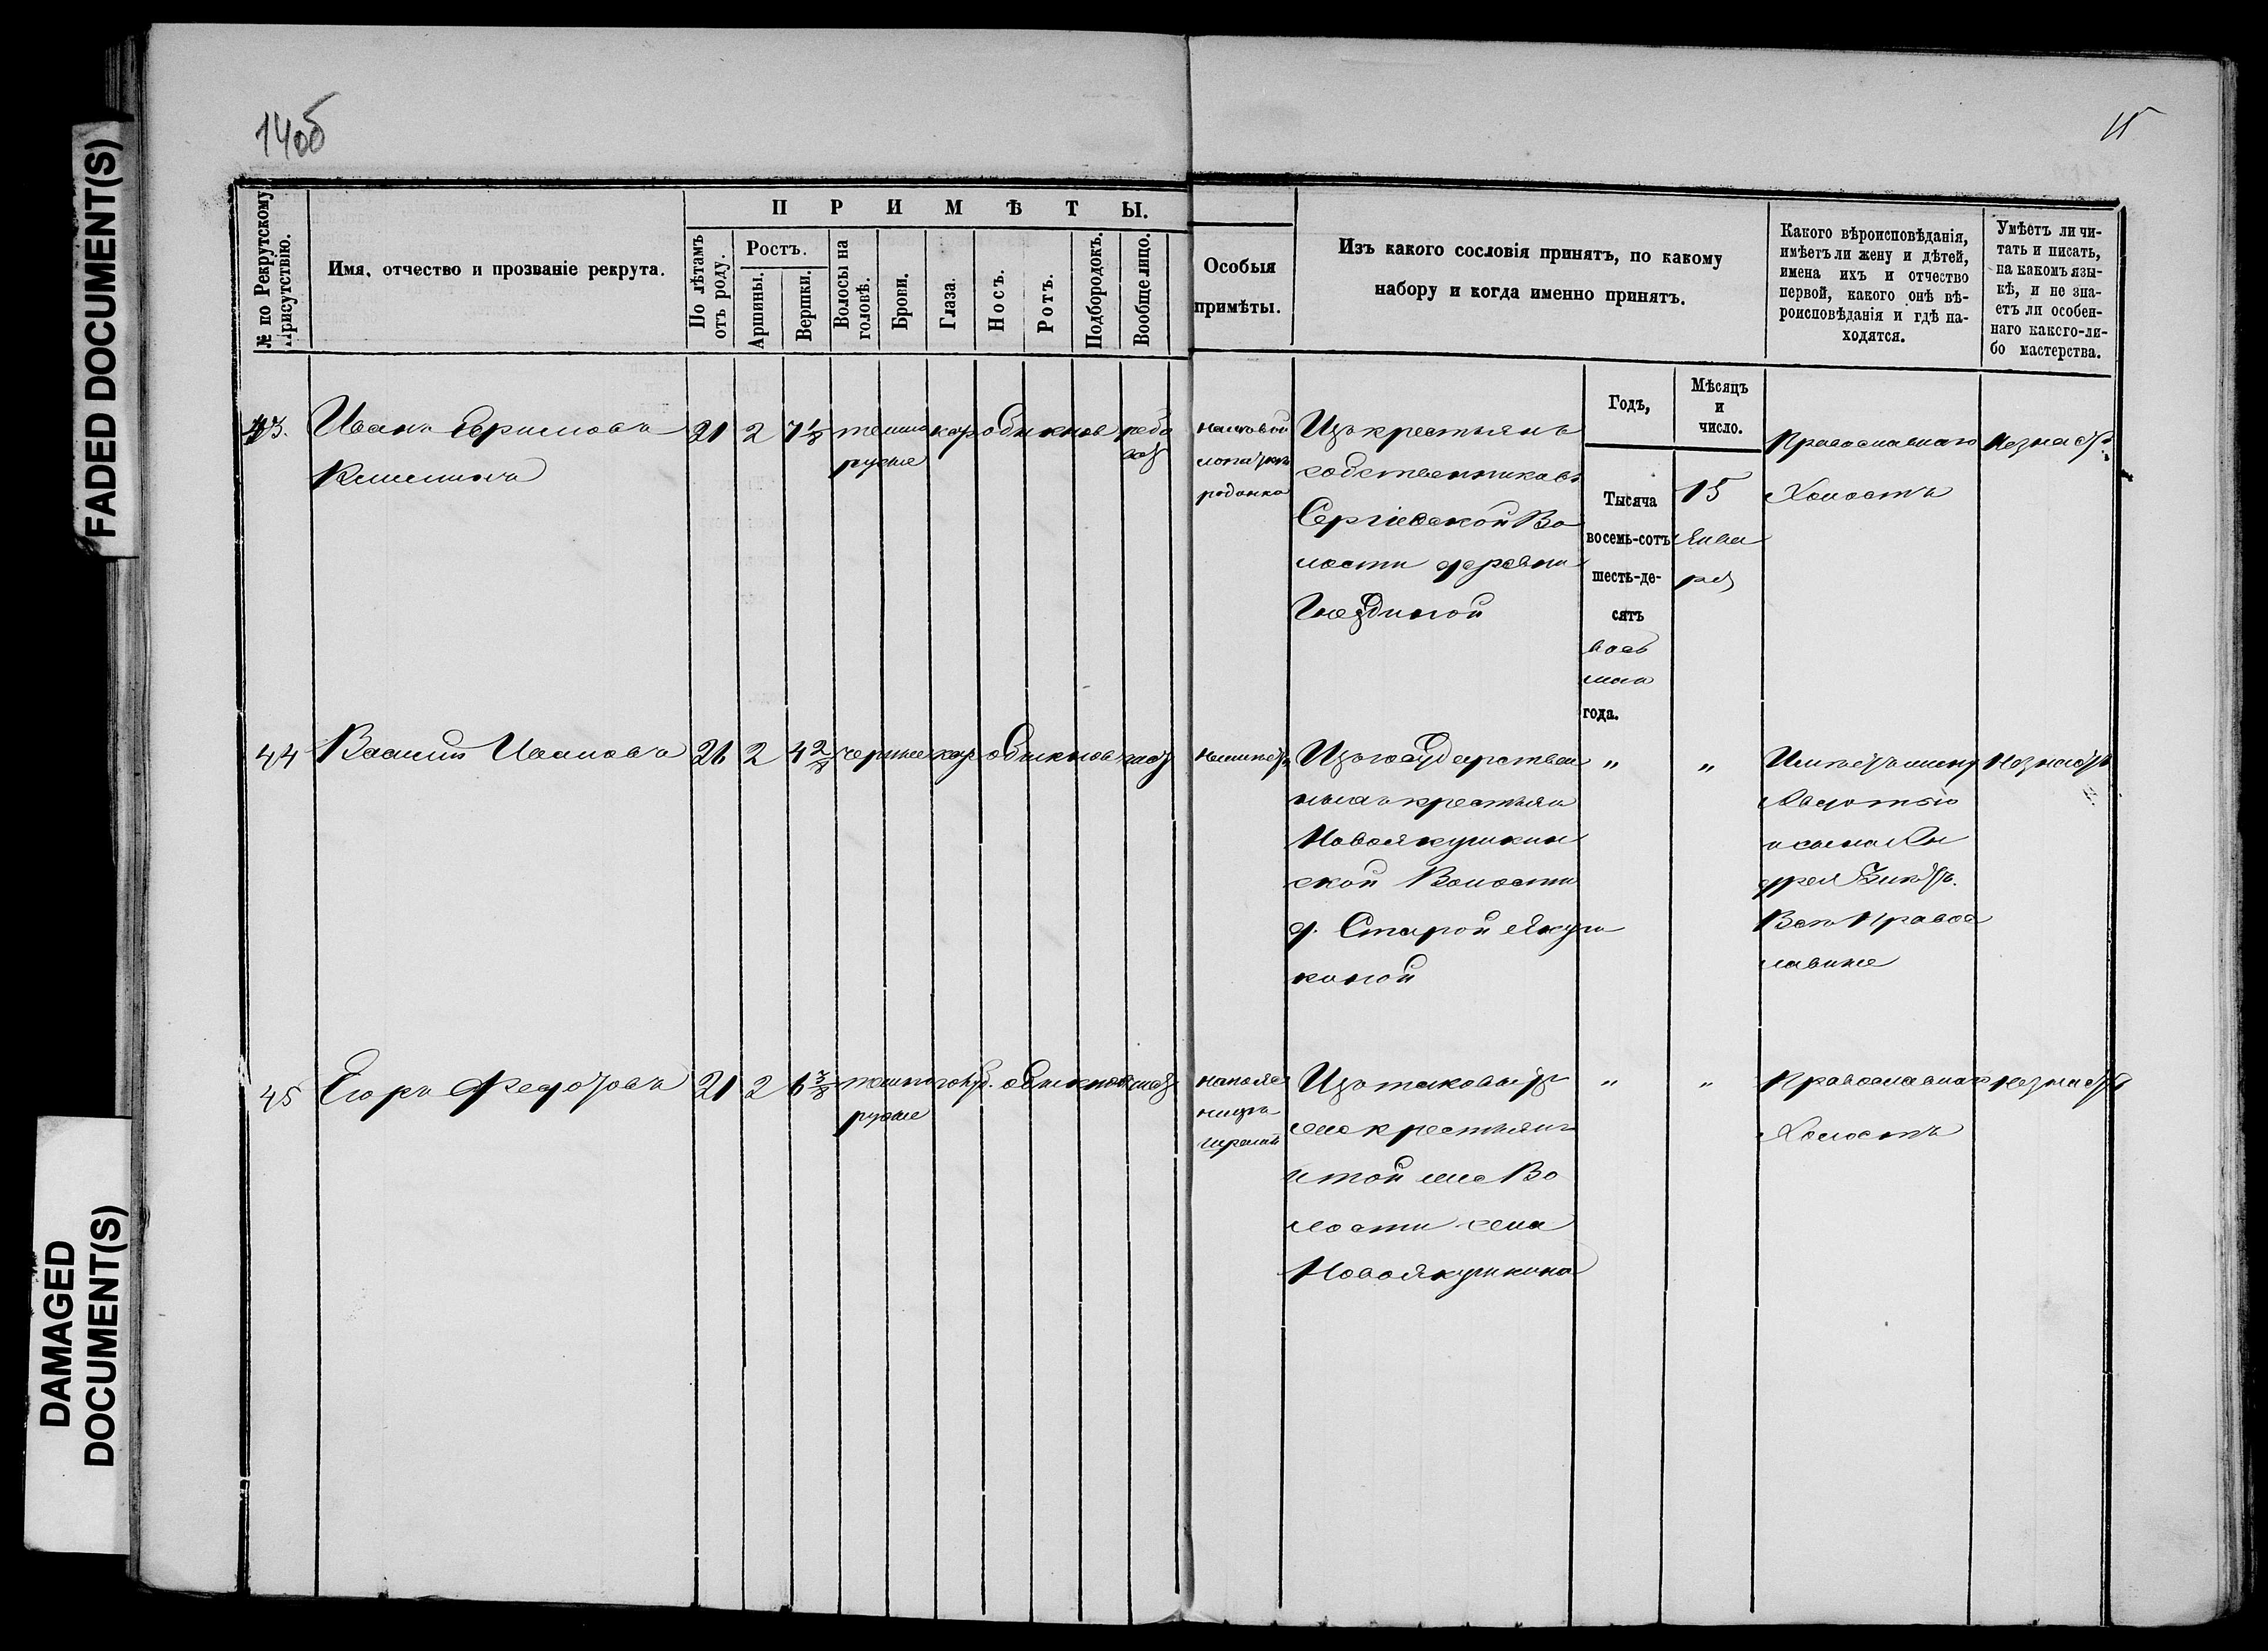 FADED DOCUMENT(S)
DAMAGED
DOCUMENT(S)
14об
15
№ по Рекрутскому
присутствію.
Имя, отчество и прозваніе рекрута.
ПРИМѢТЫ.
По лѣтамъ
отъ роду.
Ростъ.
Аршины.
Вершки.
Волосы на
головѣ.
Брови.
Глаза.
Носъ.
Ротъ.
Подбородокъ.
Вообще лицо.
Особыя
примѣты.
Изъ какого сословія принятъ, по какому
набору и когда именно принятъ.
Какого вѣроисповѣданія,
имѣетъ ли жену и дѣтей,
имена ихъ и отчество
первой, какого онѣ вѣ-
роисповѣданія и гдѣ на-
ходятся.
Умѣетъ ли чи-
тать и писать,
на какомъ язы-
кѣ, и не зна-
етъ ли особен-
наго какого-ли-
бо мастерства.
Годъ,
Мѣсяцъ
и
число.
43. Иванъ Ефимовъ 21 2 7 1/8 темно кар обыкнов рябо
русые
на лѣвой
лопаткѣ
родинка
Изъ крестьянъ
собственниковъ
Сергіевской Во
лости деревни
Гнездиной
Тысяча
восемь-сотъ
шесть-де-
сятъ
вось
маго
года.
15
Янва
ря
Православнаго
Холостъ
Незнаетъ
44 Василій Ивановъ 26 2 4 2/8 черные кар обыкнов чист
Изъ государствен
ныхъ крестьянъ
Новоякушкин
ской Волости
д. Старой Якуш
киной
" "
Имѣетъ жену
Авдотью
и сына Ан
дрея
Всѣ Правос
лавные
Незнаетъ
45 Егоръ Федотовъ 21 2 6 3/8 темно голуб. обыкнов чист
русые
на пояс
ницѣ
шрамъ
Изъ таковыхъ
же крестьянъ
и той же Во
лости села
Новоякушкина
" "
Православнаго
Холостъ
незнаетъ